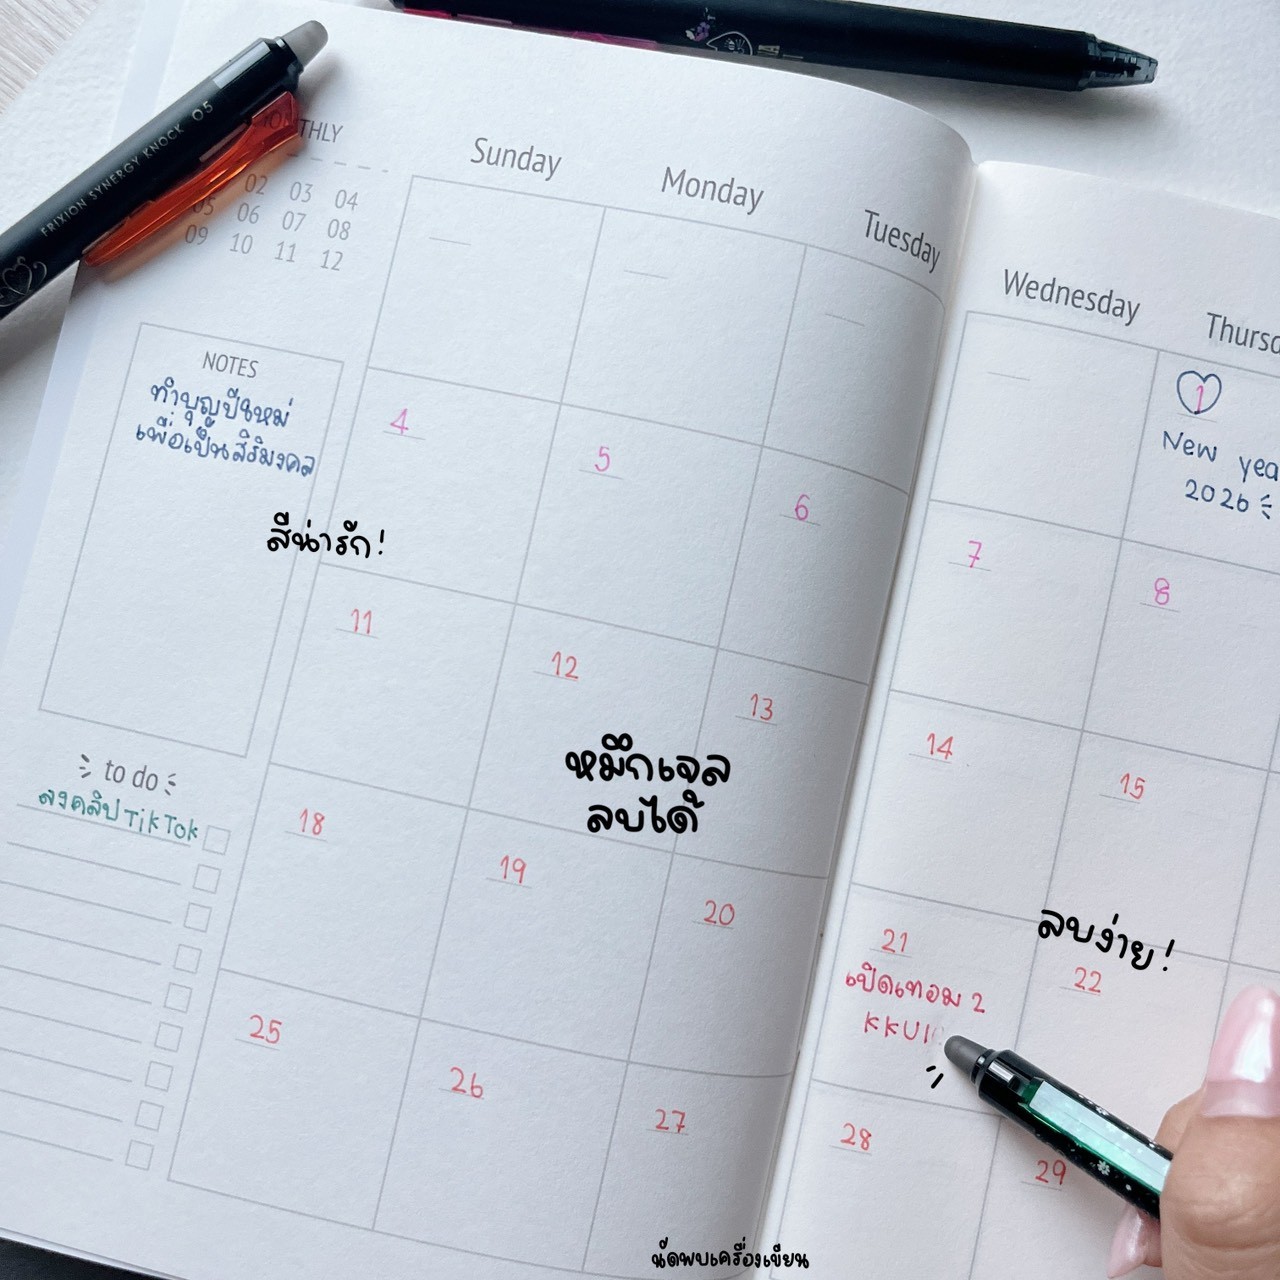 FRIXION SYNERGY KNOCK 05
MONTHLY
02 03 04
05 06 07 08
09 10 11 12
Sunday
Monday
Tuesday
Wednesday
NOTES
ทำบุญปีใหม่
เพื่อเป็นสิริมงคล
1
New yea
2026
4
5
6
7
8
สีน่ารัก!
11
12
13
14
15
หมึกเจล
ลบได้
to do
ลงคลิป TikTok
18
19
20
21
เปิดเทอม 2
KKU
22
ลบง่าย!
25
26
27
28
29
นัดพบเครื่องเขียน